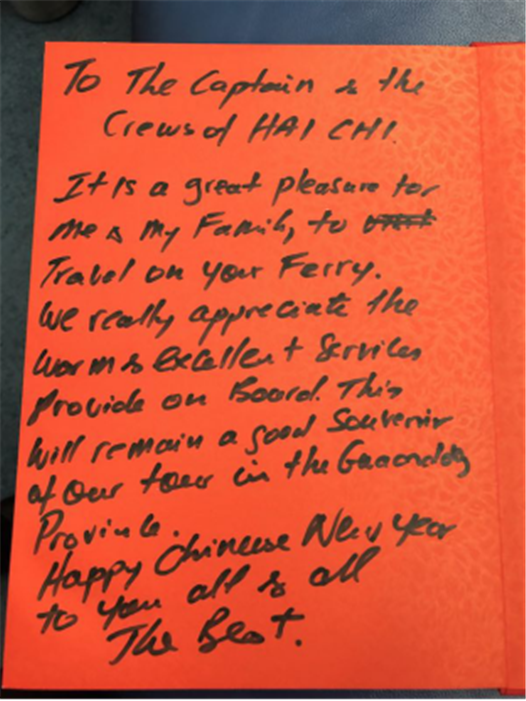 To The Captain & the
Crews of HAI CHI.
It Is a great pleasure for
me & my Family to
Travel on your Ferry.
We really appreciate the
warm & Excellent Services
Provide on Board. This
will remain a good Souvenir
of our tour in the
Province.
Happy Chinese New Year
to you all & all
The Best.